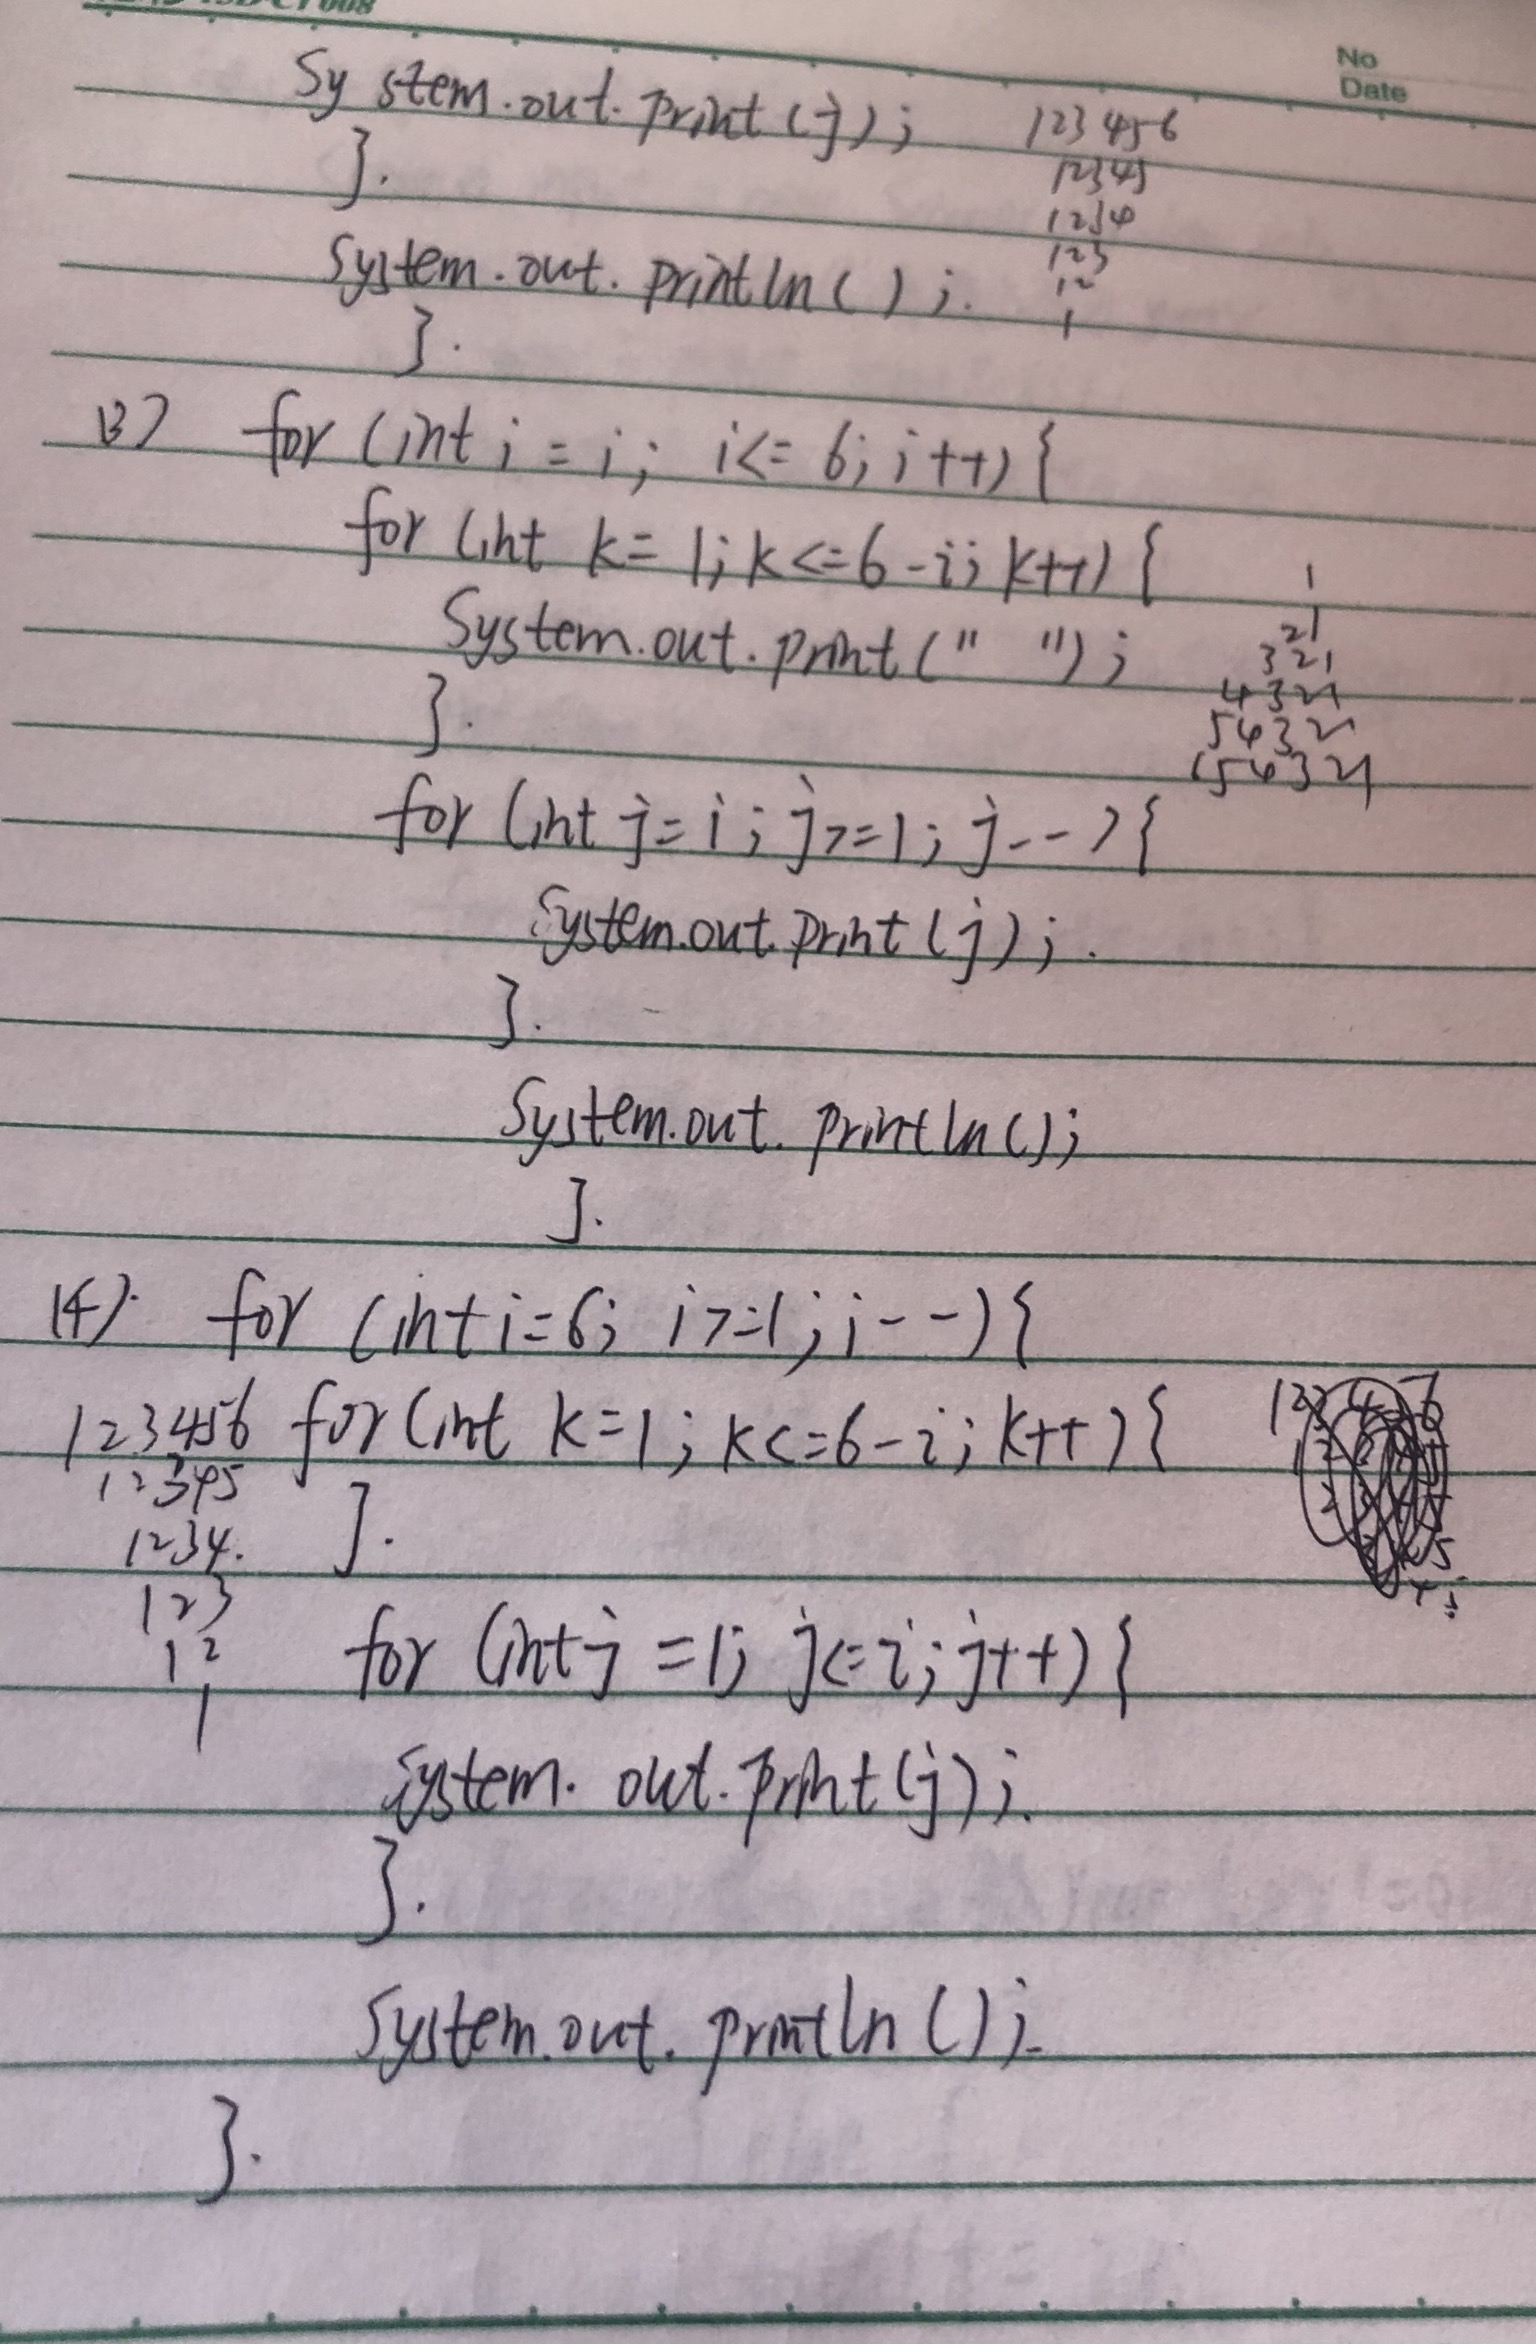 No
Date
System.out.print(j);
123456
}.
12345
1234
System.out.println();.
123
12
1
}.
(3) for (int i = i; i<= 6; i++){
for (int k= 1; k<=6-i; k++){
1
System.out.print(" ");
21
321
}.
4321
5432
654321
for (int j= i; j>=1; j--){
System.out.print(j);.
}.
System.out.println();
}.
(4). for (int i=6; i>=1; i--){
123456 for (int k=1; k<=6-i; k++){
12345
1234.
}.
123
12
for (int j =1; j<=i; j++){
1
System. out.print(j);.
}.
System.out.println();.
}.